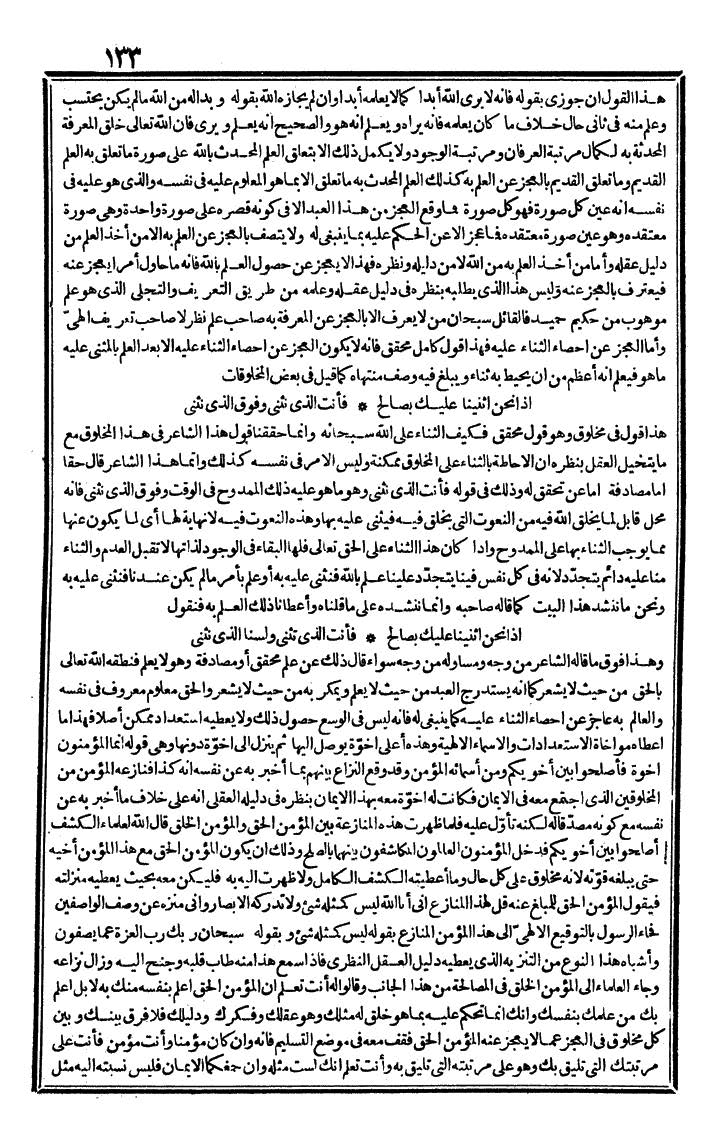 ١٣٣
هذا القول ان جوزى بقوله فانه لا يرى الله أبدا كما لا يعلمه أبدا وان لم يجازه الله بقوله وبدا له من الله ما لم يكن يحتسب
وعلم منه فى ثانى حال خلاف ما كان يعلمه فانه يراه ويعلم انه هو والصحيح انه يعلم ويرى فان الله تعالى خلق المعرفة
المحدثة به لكمال مرتبة العرفان ومرتبة الوجود ولا يكمل ذلك الا بتعلق العلم المحدث بالله على صورة ما تعلق به العلم
القديم وما تعلق القديم بالعجز عن العلم به كذلك العلم المحدث به ما تعلق الا بما هو المعلوم عليه فى نفسه والذى هو عليه فى
نفسه انه عين كل صورة فهو كل صورة فما وقع العجز من هذا العبد الا فى كونه قصره على صورة واحدة وهى صورة
معتقده وهو عين صورة معتقده فما عجز الا عن الحكم عليه بما ينبغى له ولا يتصف بالعجز عن العلم به الا من أخذ العلم من
دليل عقله وأما من أخذ العلم به من الله لا من دليله ونظره فهذا لا يعجز عن حصول العلم بالله فانه ما حاول أمرا يعجز عنه
فيعترف بالعجز عنه وليس هذا الذى يطلبه بنظره فى دليل عقله وعلمه من طريق التعريف والتجلى الذى هو علم
موهوب من حكيم حميد فالقائل سبحان من لا يعرف الا بالعجز عن المعرفة به صاحب علم نظر لا صاحب تعريف الهىّ
وأما العجز عن احصاء الثناء عليه فهذا قول كامل محقق فانه لا يكون العجز عن احصاء الثناء عليه الا بعد العلم بالمثنى عليه
ما هو فيعلم انه أعظم من ان يحيط به ثناء ويبلغ فيه وصف منتهاه كما قيل فى بعض المخلوقات
اذا نحن اثنينا عليك بصالح * فأنت الذى نثنى وفوق الذى نثنى
هذا قول فى مخلوق وهو قول محقق فكيف الثناء على الله سبحانه وانما حققنا قول هذا الشاعر فى هذا المخلوق مع
ما يتخيل العقل بنظره ان الاحاطة بالثناء على المخلوق ممكنة وليس الامر فى نفسه كذلك وانما هذا الشاعر قال حقا
اما مصادفة اما عن تحقق له وذلك فى قوله فأنت الذى نثنى وهو ما هو عليه ذلك الممدوح فى الوقت وفوق الذى نثنى فانه
محل قابل لما يخلق الله فيه من النعوت التى يخلق فيه فيثنى عليه بها وهذه النعوت فيه لا نهاية لها أى لما يكون عنها
مما يوجب الثناء بها على الممدوح واذا كان هذا الثناء على الحق تعالى فلها البقاء فى الوجود لذاتها لا تقبل العدم والثناء
منا عليه دائم يتجدّد لانه فى كل نفس فينا يتجدّد علينا علم بالله فنثنى عليه به أو علم بأمر ما لم يكن عندنا فنثنى عليه به
ونحن ما ننشد هذا البيت كما قاله صاحبه وانما ننشده على ما قلناه وأعطانا ذلك العلم به فنقول
اذا نحن اثنينا عليك بصالح * فأنت الذى تثنى ولسنا الذى نثنى
وهذا فوق ما قاله الشاعر من وجه ومساو له من وجه سواء قال ذلك عن علم محقق أو مصادفة وهو لا يعلم فنطقه الله تعالى
بالحق من حيث لا يشعر كما انه يستدرج العبد من حيث لا يعلم ويمكر به من حيث لا يشعر والحق معلوم معروف فى نفسه
والعالم به عاجز عن احصاء الثناء عليه كما ينبغى له فانه ليس فى الوسع حصول ذلك ولا يعطيه استعداد ممكن أصلا فهذا ما
اعطاه مواخاة الاستعدادات والاسماء الالهية وهذه أعلى اخوّة يوصل اليها ثم ينزل الى اخوّة دونها وهى قوله انما المؤمنون
اخوة فأصلحوا بين أخويكم ومن أسمائه المؤمن وقد وقع النزاع بينهم بما أخبر به عن نفسه انه كذا فنازعه المؤمن من
المخلوقين الذى اجتمع معه فى الايمان فكانت له اخوّة معه بهذا الايمان بنظره فى دليله العقلى انه على خلاف ما أخبر به عن
نفسه مع كونه مصدّقا له لكنه تأوّل عليه فلما ظهرت هذه المنازعة بين المؤمن الحق والمؤمن الخلق قال الله لعلماء الكشف
أصلحوا بين أخويكم فدخل المؤمنون العالمون المكاشفون بينهما بالصلح وذلك ان يكون المؤمن الحق مع هذا المؤمن أخيه
حتى يبلغه قوّته لانه مخلوق على كل حال وما أعطيته الكشف الكامل ولا ظهرت اليه به فليكن معه بحيث يعطيه منزلته
فيقول المؤمن الحق للمبلغ عنه قل لهذا المنازع انى أنا الله ليس كمثله شئ ولا تدركه الابصار وانى منزه عن وصف الواصفين
فجاء الرسول بالتوقيع الالهىّ الى هذا المؤمن المنازع بقوله ليس كمثله شئ وبقوله سبحان ربك رب العزة عما يصفون
وأشباه هذا النوع من التنزيه الذى يعطيه دليل العقل النظرى فاذا سمع هذا منه طاب قلبه وجنح اليه وزال نزاعه
وجاء العلماء الى المؤمن الخلق فى المصالحة من هذا الجانب وقالوا له أنت تعلم ان المؤمن الحق اعلم بنفسه منك به لا بل اعلم
بك من علمك بنفسك وانك انما تحكم عليه بما هو خلق له مثلك وهو عقلك وفكرك ودليلك فلا فرق بينك وبين
كل مخلوق فى العجز عما لا يعجز عنه المؤمن الحق فقف معه فى موضع التسليم فانه وان كان مؤمنا وأنت مؤمن فأنت على
مرتبتك التى تليق بك وهو على مرتبته التى تليق به وأنت تعلم انك لست مثله وان جمعكما الايمان فليس نسبته اليه مثل